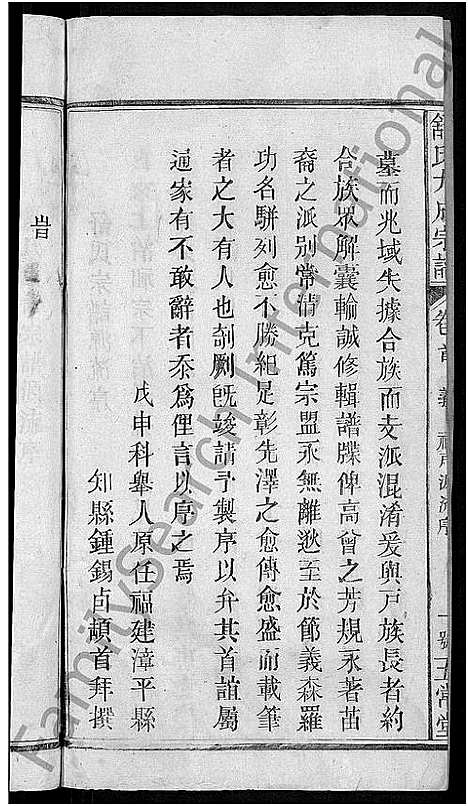 舒氏九成宗譜 卷首 義 祖戶源流序 一號 五常堂
墓而兆域失據合族而支派混淆爰與戶族長者約
合族眾解囊輸誠修輯譜牒俾高曾之芳規永著苗
裔之派別常清克篤宗盟永無離逖至於節義森羅
功名駢列愈不勝紀是彰先澤之愈傳愈盛而載筆
者之大有人也剞劂旣竣請予製序以弁其首誼屬
通家有不敢辭者忝爲俚言以序之焉
戊申科舉人原任福建漳平縣
知縣鍾錫卣頓首拜撰
FamilySearch International